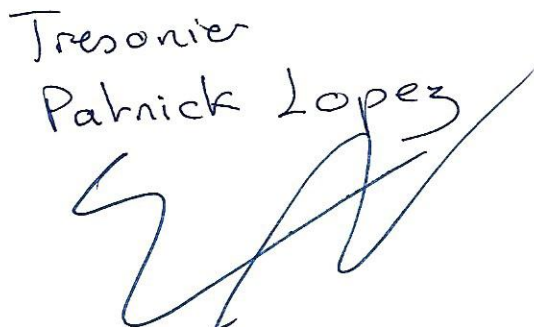 Tresorier
Patrick Lopez